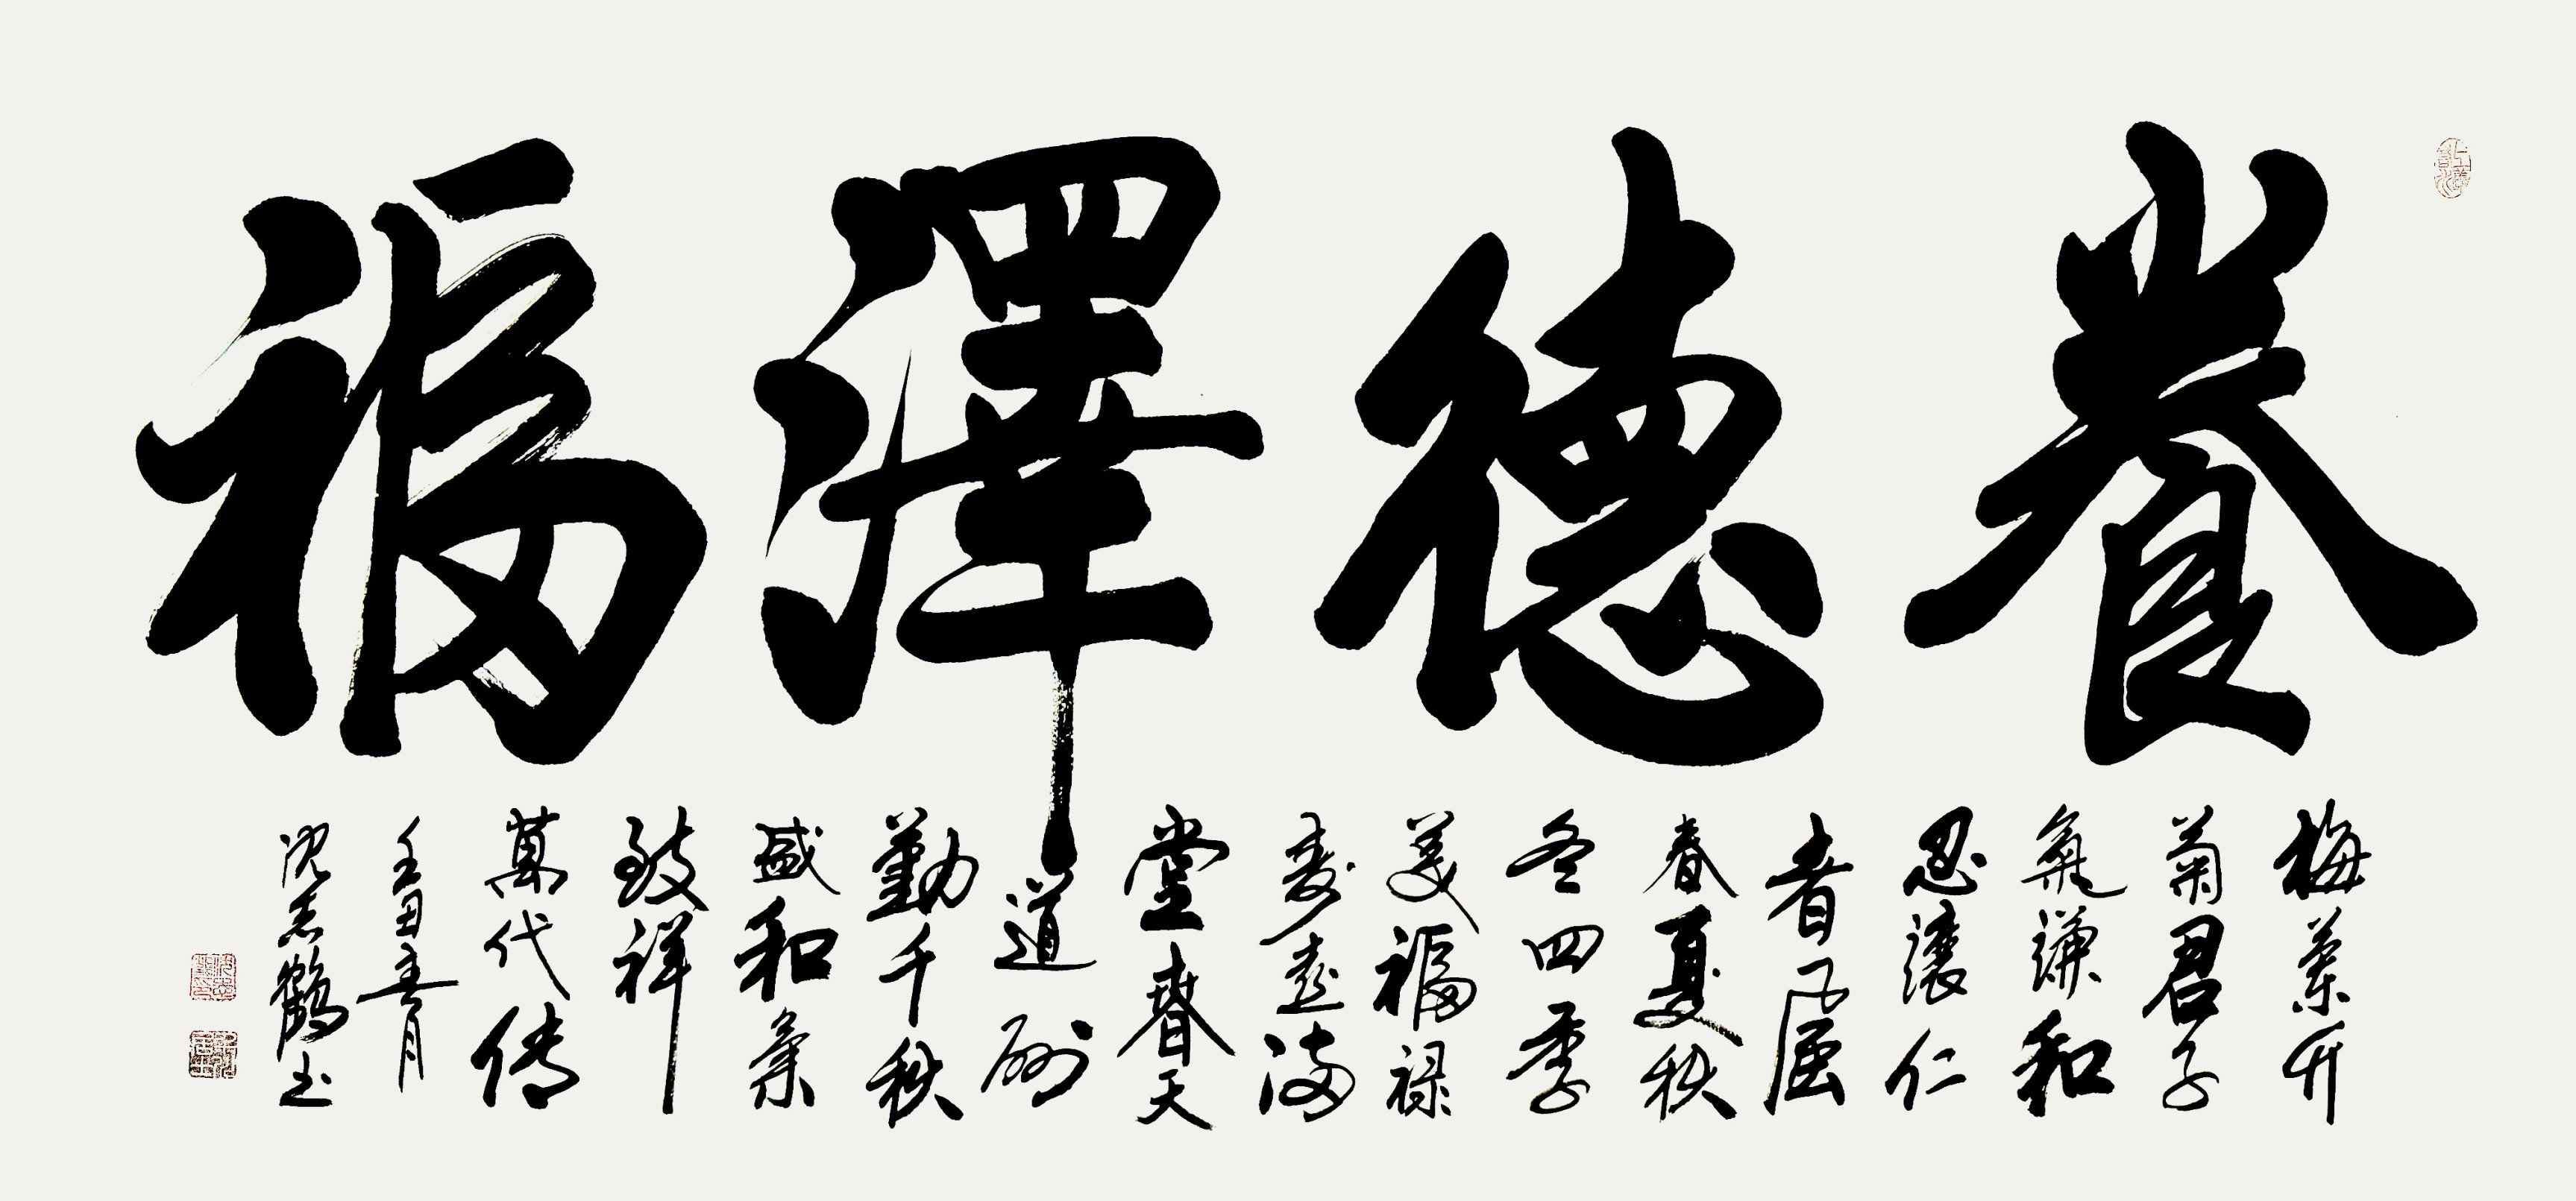 養德澤福
梅蘭竹
菊君子
氣謙和
忍讓仁
者風
春夏秋
冬四季
美福禄
壽喜滿
堂春天
道酬
勤千秋
盛和氣
致祥
萬代傳
壬寅春月
沈志鶴书